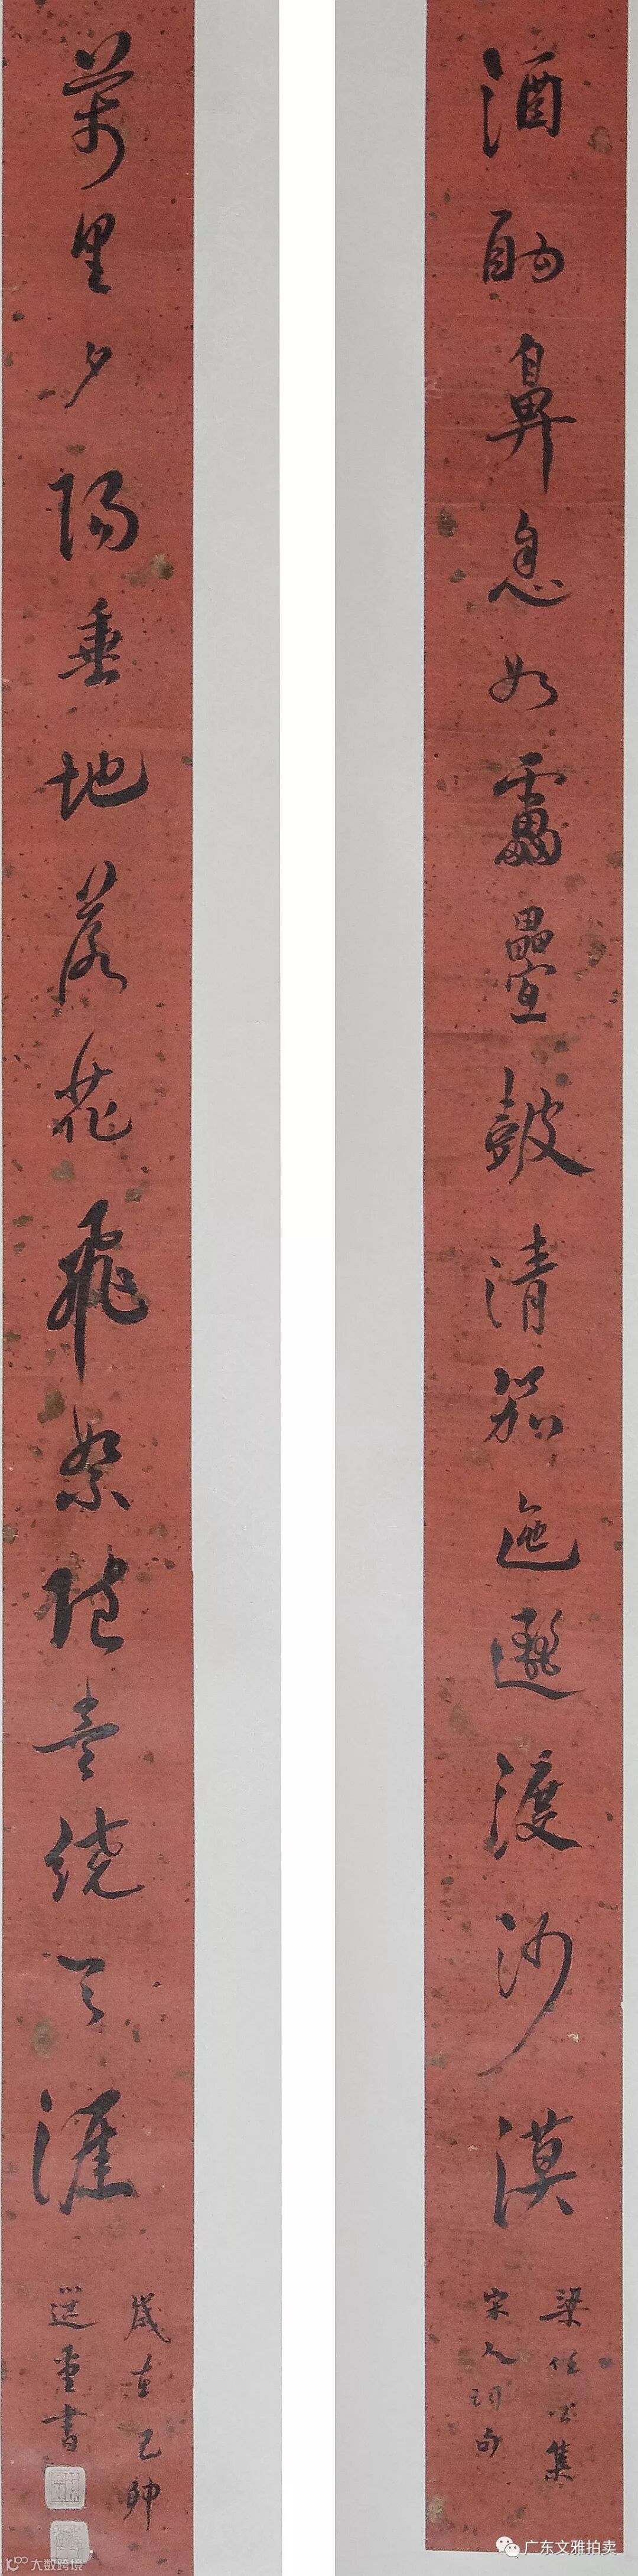 酒酣鼻息如雷疊鼓清笳迤邐渡沙漠
梁任公集
宋人詞句
萬里夕陽垂地落花飛絮隨意繞天涯
歲在己卯
選 書
广东文雅拍卖
大数跨境